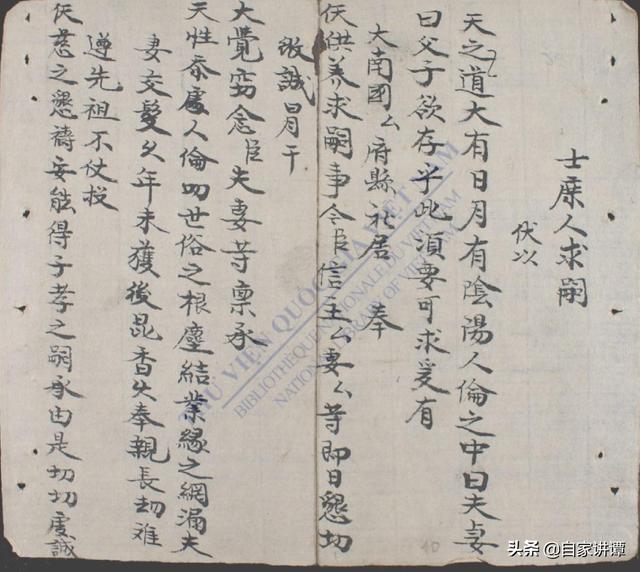 士庶人求嗣
伏以
天之道大有日月有陰陽人倫之中曰夫妻
曰父子欲存乎此須要可求爰有
大南國厶府縣社居 奉
仸供养求嗣事今臣信主厶妻厶等即日懇切
啟誠冒干
大覺窃念臣夫妻等禀承
天性忝處人倫 世俗之根塵結業緣之網漏夫
妻交髮 年未獲後昆香火奉親長 难
遵先祖不 投
仸慈之懇禱安能得子孝之嗣承由是切切虔誠
THƯ VIỆN QUỐC GIA VIỆT NAM
BIBLIOTHÈQUE NATIONALE DU VIETNAM
NATIONAL LIBRARY OF VIETNAM
10
头条 @自家讲谭